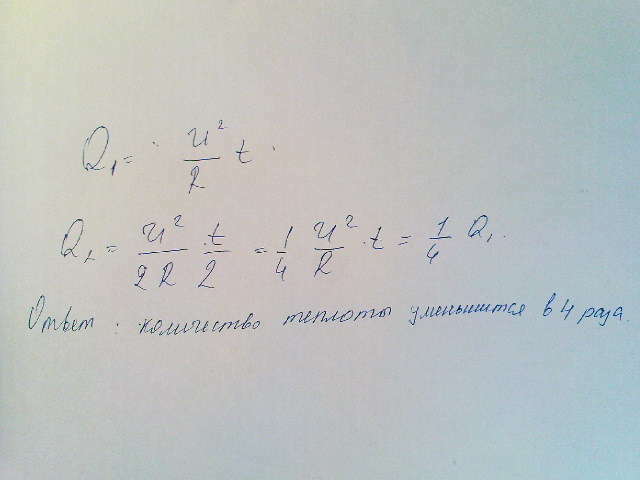 Q₁ = U²/R t.
Q₂ = U²/2R · t/2 = 1/4 U²/R · t = 1/4 Q₁.
Ответ: количество теплоты уменьшится в 4 раза.